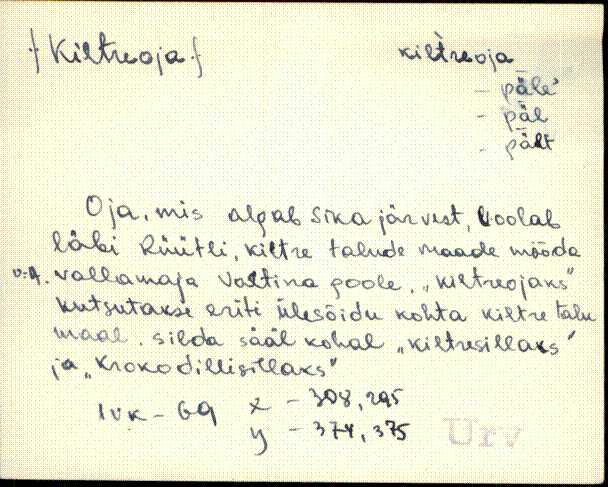 {Kiltreoja} kiltreoja
- päle'
- päl
- pält
Oja, mis algab Sika järvest, voolab
läbi Rüütli, Kiltre talude maade mööda
v.-A. vallamaja Vastina poole, „kiltreojaks"
kutsutakse eriti ülesõidu kohta Kiltre talu
maal. Silda sääl kohal „kiltresillaks"
ja „Krokodillisillaks"
IVK-69 x - 308,295
y - 374,375
Urv